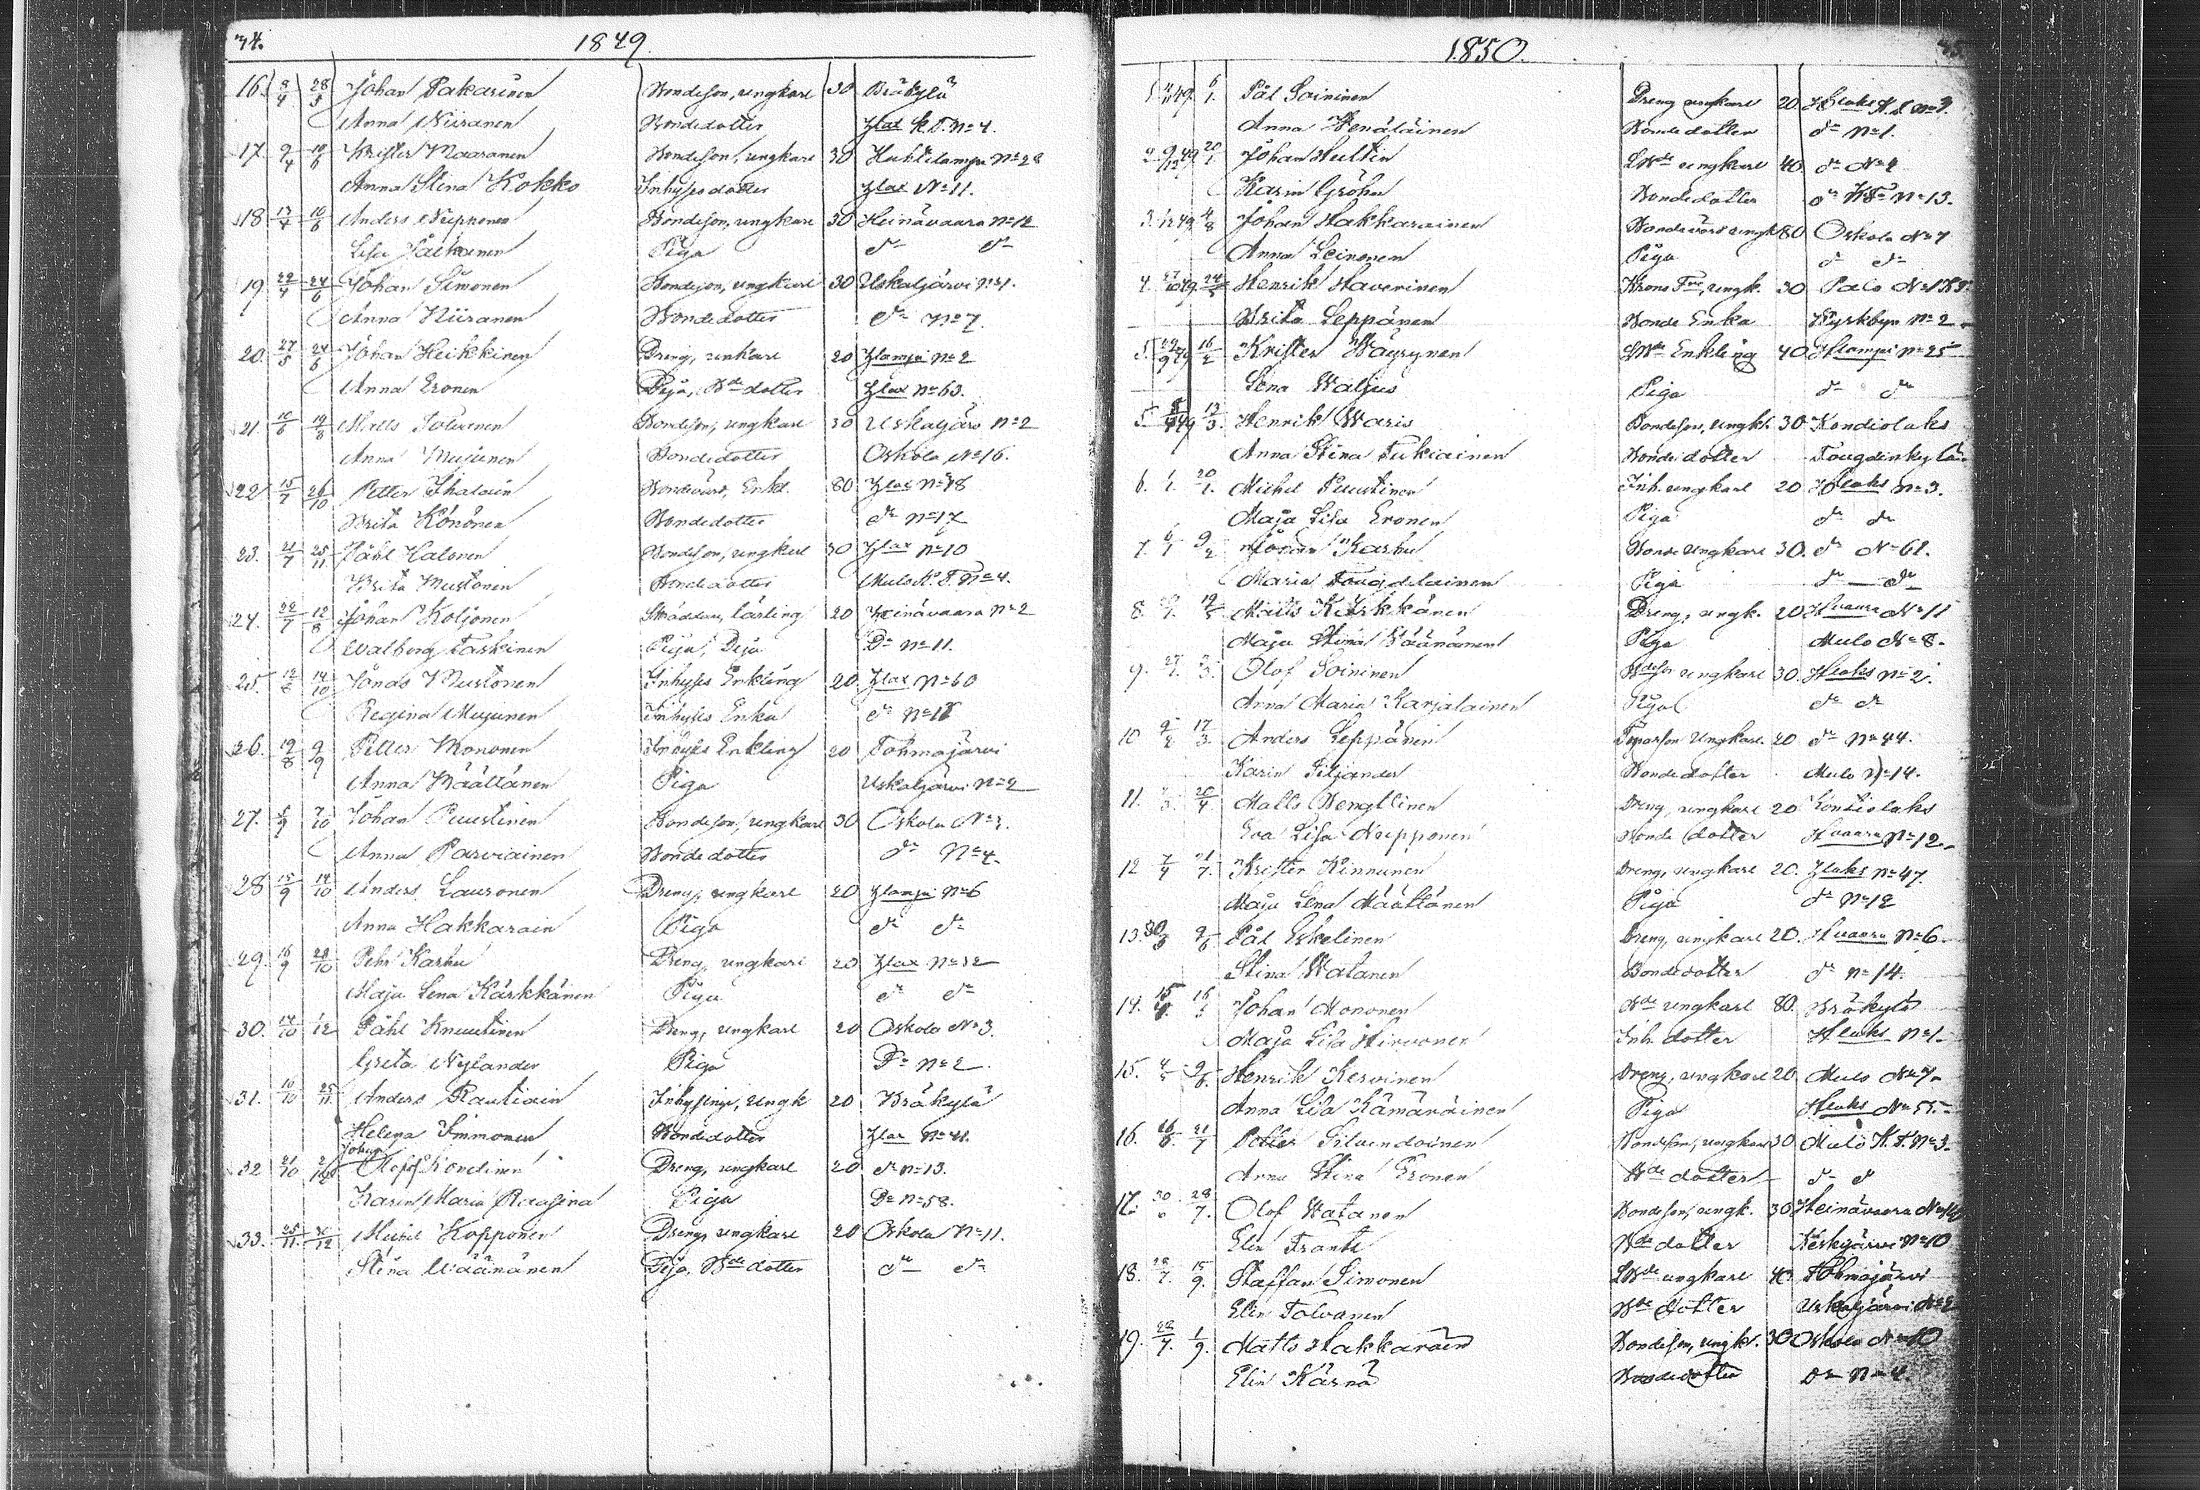 34.
1849
16. 9/4 28/5 Johan Pakarinen Bondeson, ungkarl 30 Bråkylä
Anna Niiranen Bondedotter Hlax K.T. No 4.
17. 9/4 10/6 Krister Maaranen Bondeson, ungkarl 30 Huhtilampi No 28
Anna Stina Kokko Inhysesdotter Hlax No 11.
18 13/4 10/6 Anders Nupponen Bondeson, ungkarl 30 Heinävaara No 12
Lisa Piga do do
19. 22/4 24/6 Johan Simonen Bondeson, ungkarl 30 Uskaljärvi No 4.
Anna Niiranen Bondedotter do No 7.
20. 27/5 24/6 Johan Heikkinen Dreng, unkarl 20 Hlampi No 2
Anna Eronen Piga, Bde dotter Hlax No 63.
21. 10/6 19/8 Matts Tolvanen Bondeson, ungkarl 30 Uskaljärvi No 2
Anna Mujunen Bondedotter Oskola No 16.
22. 15/7 26/10 Petter Ihalain Bondevärd, Enkl. 80 Hlax No 18
Brita Könönen Bondedotter do No 17
23. 21/7 25/11 Påhl Halonen Bondeson, ungkarl 30 Hlax No 10
Brita Mustonen Bondedotter Mulo K. T. No 4.
24. 22/7 12/8 Johan Koljonen Skräddare lärling 20 Heinävaara No 2
Walborg Taskinen Piga, Deja Do No 11.
25. 12/8 14/10 Jonas Mustonen Inhyses Enkling 20. Hlax No 60
Regina Mujunen Inhyses Enka do No 18
26. 19/8 9/9 Petter Mononen Inhyses Enkling 20 Tohmajärvi
Anna Määttänen Piga Uskaljärvi No 2
27. 1/9 7/10 Johan Puustinen Bondeson, ungkarl 30 Oskola No 3.
Anna Parviainen Bondedotter do No 4.
28 15/9 14/10 Anders Lauronen Dreng, ungkarl 20 Hlampi No 6
Anna Hakkarain Piga do do
29. 16/9 28/10 Pehr Karhu Dreng, ungkarl 20 Hlax No 32
Maja Lena Kärkkänen Piga do do
30. 14/10 1/12 Påhl Knuutinen Dreng, ungkarl 20 Oskola No 3.
Greta Nylander Piga Do No 2.
31. 10/10 25/11 Anders Rautiain Inhysing, ungk 20 Bråkylä
Helena Immonen Bondedotter Hlax No 41.
Johan
32 21/10 Olofs Kontinen Dreng, ungkarl 20 do No 13.
Karin Maria Raasina Piga Do No 58.
33. 25/11. Michel Kopponen Dreng, ungkarl 20 Oskola No 11.
Stina Wäänänen Piga, Bde dotter do do
1850.
1. 49. 6/1. Pål Soininen Dreng ungkarl 20. Hlaks K.L No 9.
Anna Wenäläinen Bondedotter do No 1.
2. 9/12 49 20/1 Johan Hultin LBde ungkarl 40. do No 4
Karin Gröhn Bondedotter do No 13.
3. 49 4/8 Johan Hakkarainen Bondevärd ungk 80. Oskola No 7
Anna Leinonen Piga do do
4. 27/10 49. 24/2 Henrik Haverinen Krono Tor, ungk. 30. Palo No 1
Brita Leppänen Bonde Enka Kyrkbyn No 2.
5. 29/9 49 16/2 Krister Wäyrynen LBde Enkling 40. Hlampi No 25
Lena Waljus Piga do do
5. 49 13/3. Henrik Waris Bondeson, ungkl. 30. Kondiolaks
Anna Stina Tukiainen Bondedotter Tougdinkylä.
6. 1/1. 20/1. Michel Puustinen Inh. ungkarl 20 Hlaks No 3.
Maja Lisa Eronen Piga do do
7. 6/1 9/2 Johan Karhu Bonde ungkarl 30. do No 61.
Maria Tougdelainen Piga do do
8. Matts Kärkkänen Dreng, ungk. 20. Hvaara No 11
Maja Stina Väänänen Piga Mulo No 8.
9. Olof Soininen Bdeson ungkarl 30. Hlaks No 2.
Anna Maria Karjalainen Piga do do
10 9/2 17/3. Anders Leppänen Torparson Ungkarl. 20 do No 44.
Karin Siljander Bondedotter Mulo No 14.
11. 20/4 Matts Wengttinen Dreng, ungkarl 20 Kontiolaks
Eva Lisa Nupponen Bonde dotter Hvaara No 12.
12 7/4 21/7. Krister Kinnunen Dreng, ungkarl 20. Hlaks No 47.
Maja Lena Määttänen Piga do No 12
13. 9/6 Pål Eskelinen Dreng, ungkarl 20. Hvaara No 6.
Stina Watanen Bondedotter do No 14.
14. Johan Mononen Bde ungkarl 80. Bråkylä
Maja Lisa Hirvonen Inh. dotter Hlaks No 1.
15. 9/6. Henrik Kervinen Dreng, ungkarl 20. Mulo No 7.
Anna Lisa Kämäräinen Piga Hlaks No 55.
16. 16/6 21/7 Petter Silvendoinen Bondeson, ungkarl 30 Mulo K. T. No 3.
Anna Stina Eronen Bde dotter do do
17. 30/6 28/7. Olof Watanen Bondeson, ungk. 30. Heinävaara No 14
Elin Frantti Bde dotter Keskijärvi No 10
18. 15/9. Staffan Simonen LBde ungkarl 40. Tohmajärvi
Elin Tolvanen Bde dotter Uskaljärvi No 2
19. 28/7. 1/9. Matts Hakkarain Bondeson, ungkl. 30 Oskola No 10
Elin Kärnä Bondedotter Do No 4.